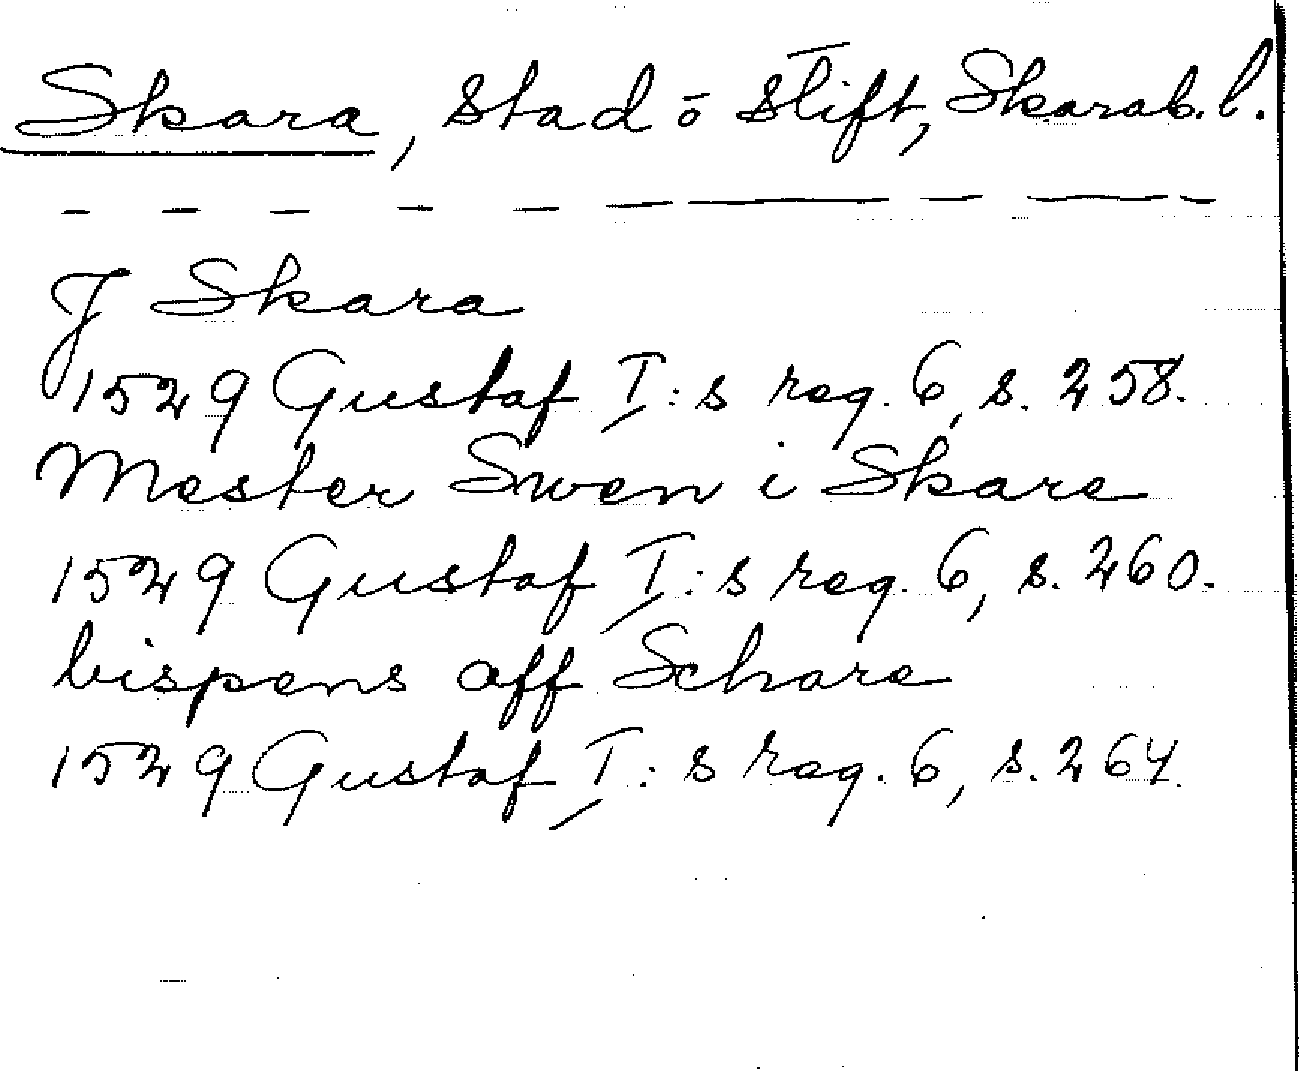 Skara, stad ō stift, Skarab. l.
J Skara
1529 Gustaf I:s reg. 6, s. 258.
Mester Swen i Skare
1529 Gustaf I:s reg. 6, s. 260.
bispens aff Schare
1529 Gustaf I:s reg. 6, s. 264.